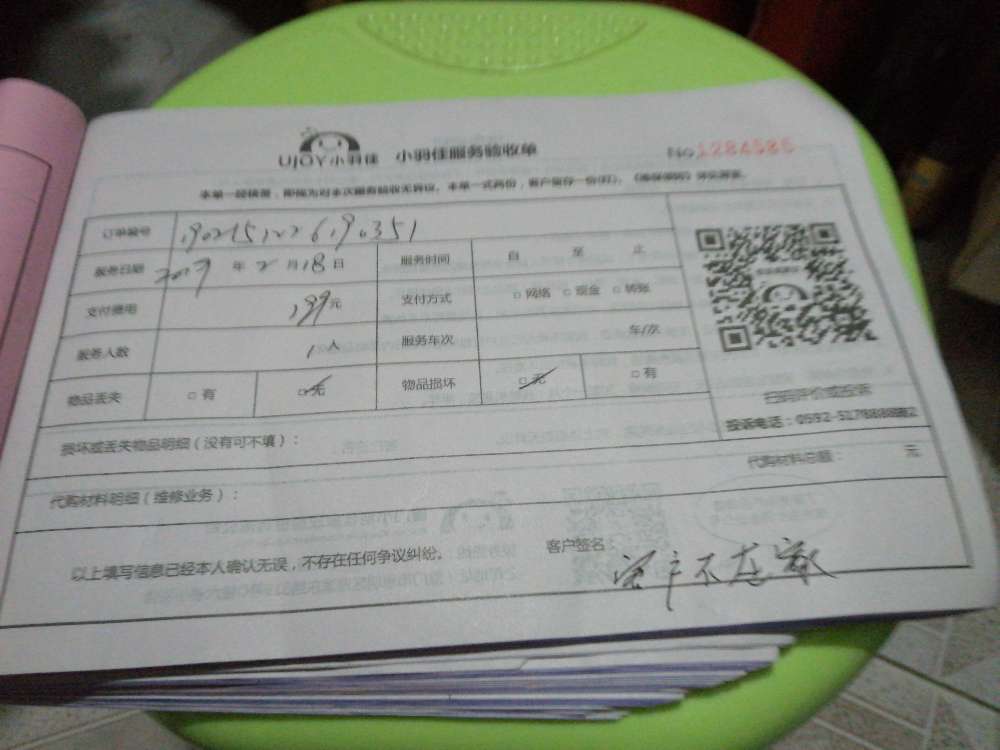 UJOY小羽佳 小羽佳服务验收单 NO.1284586
本单一经填写,即视为对本次服务验收无异议。本单一式两份,客户留存一份
订单编号 1902151226190351
服务日期 2019 年 2 月 18 日 服务时间 自 至 止
支付费用 199元 支付方式 □ 网络 □ 现金 □ 转账
服务人数 1 人 服务车次 车/次
物品丢失 □ 有 □ 无 物品损坏 □ 无 □ 有
扫码评价或投诉
投诉电话:0592-5178888
损坏或丢失物品明细(没有可不填):
代购材料明细(维修业务): 代购材料总额: 元
以上填写信息已经本人确认无误,不存在任何争议纠纷。 客户签名:
客户不在家